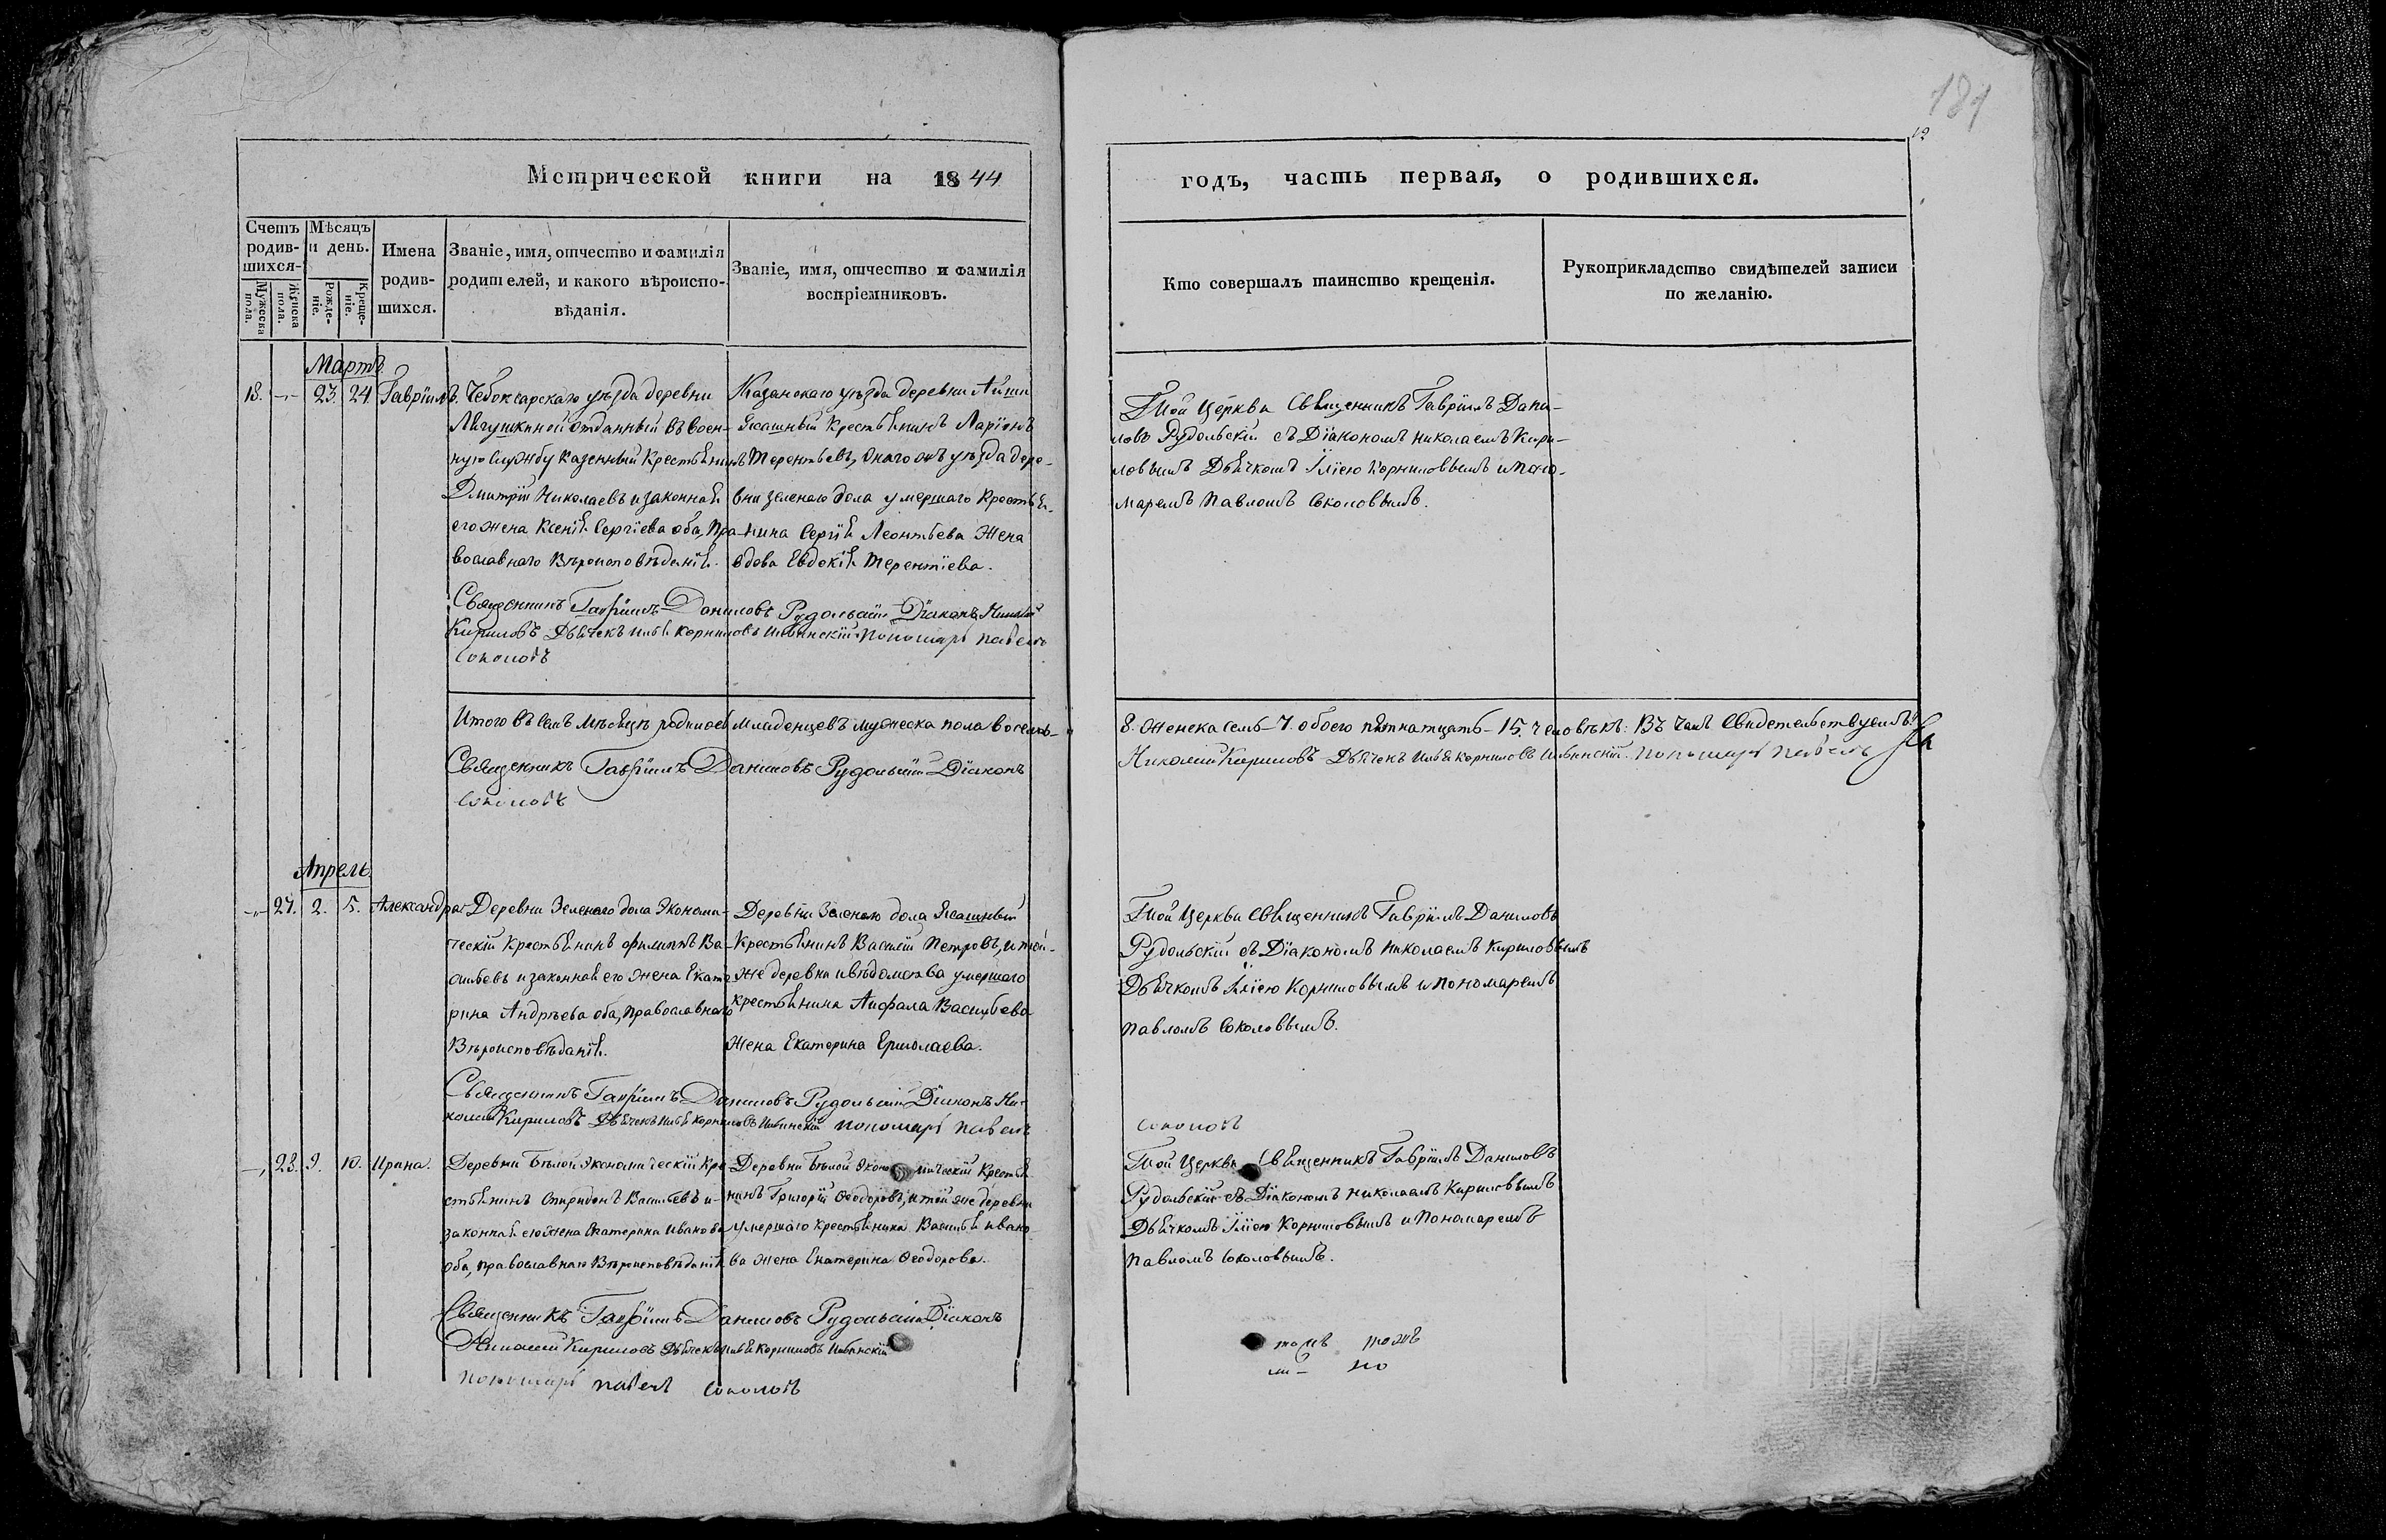 181
12
Метрической книги на 1844
годъ, часть первая, о родившихся.
Счетъ родив-шихся.
Мужеска пола.
Женска пола.
Мѣсяцъ и день.
Рожде-ніе.
Креще-ніе.
Имена родив-шихся.
Званіе, имя, отчество и фамилія родителей, и какого вѣроиспо-вѣданія.
Званіе, имя, отчество и фамилія воспріемниковъ.
Кто совершалъ таинство крещенія.
Рукоприкладство свидѣтелей записи по желанію.
Мартъ
18. -„- 23. 24. Гавріилъ.
Чебоксарскаго уѣзда деревни
Лягушкиной отданный въ воен-
ную службу казенный крестьянинъ
Дмитрій Николаевъ и законная
его жена Ксенія Сергіева оба, пра-
вославнаго вѣроисповѣданія.
Казанскаго уѣзда деревни Айши
Ясашный крестьянинъ Ларіонъ
Терентьевъ, онаго жъ уѣзда дере-
вни зеленаго дола умершаго крестья-
нина Сергія Леонтьева жена
вдова Евдокія Терентіева.
Той церкви священникъ Гавріилъ Дани-
ловъ Рудольскій съ Діакономъ Николаемъ Кири-
ловымъ Дьячкомъ Иліею Корниловымъ и поно-
маремъ Павломъ Соколовымъ.
Священникъ Гавріилъ Даниловъ Рудольскій Діаконъ Николай
Кириловъ Дьячекъ Илья Корниловъ Ильинскій Пономарь Павелъ
Соколовъ
Итого въ семъ мѣсяцѣ родилось младенцевъ мужеска пола восемь-
8. женска семь-7. обоего пятнатцать-15. человѣкъ: Въ чемъ свидетельствуемъ:
Священникъ Гавріилъ Даниловъ Рудольскій Діаконъ
Николай Кириловъ Дьячекъ Илья Корниловъ Ильинскій. Пономарь Павелъ
Соколовъ
Апрель
-„- 27. 2. 5. Александра
Деревни Зеленаго дола Экономи-
ческій крестьянинъ Филиппъ Ва-
сильевъ и законная его жена Екате-
рина Андрѣева оба, православнаго
вѣроисповѣданія.
Деревни Зеленаго дола Ясашный
крестьянинъ Василій Петровъ, и той-
же деревни и вѣдомства умершаго
крестьянина Анфала Васильева
жена Екатерина Ермолаева.
Той церкви священникъ Гавріилъ Даниловъ
Рудольскій съ Діакономъ Николаемъ Кириловымъ
Дьячкомъ Иліею Корниловымъ и пономаремъ
Павломъ Соколовымъ.
Священникъ Гавріилъ Даниловъ Рудольскій Діаконъ Ни-
колай Кириловъ Дьячекъ Илья Корниловъ Ильинскій пономарь Павелъ
Соколовъ
-„ 28. 9. 10. Ирина.
Деревни Бѣлой экономическій кре-
стьянинъ Спиридонъ Васильевъ и-
законная его жена Екатерина Иванова
оба, православнаго вѣроисповѣданія
Деревни Бѣлой экономическій крестья-
нинъ Григорій Ѳеодоровъ, и той же деревни
умершаго крестьянина Василья Ивано-
ва жена Екатерина Ѳеодорова.
Той церкви священникъ Гавріилъ Даниловъ
Рудольскій съ Діакономъ Николаемъ Кириловымъ
Дьячкомъ Иліею Корниловымъ и пономаремъ
Павломъ Соколовымъ.
Священникъ Гавріилъ Даниловъ Рудольскій Діаконъ
Николай Кириловъ Дьячекъ Илья Корниловъ Ильинскій
Пономарь Павелъ Соколовъ